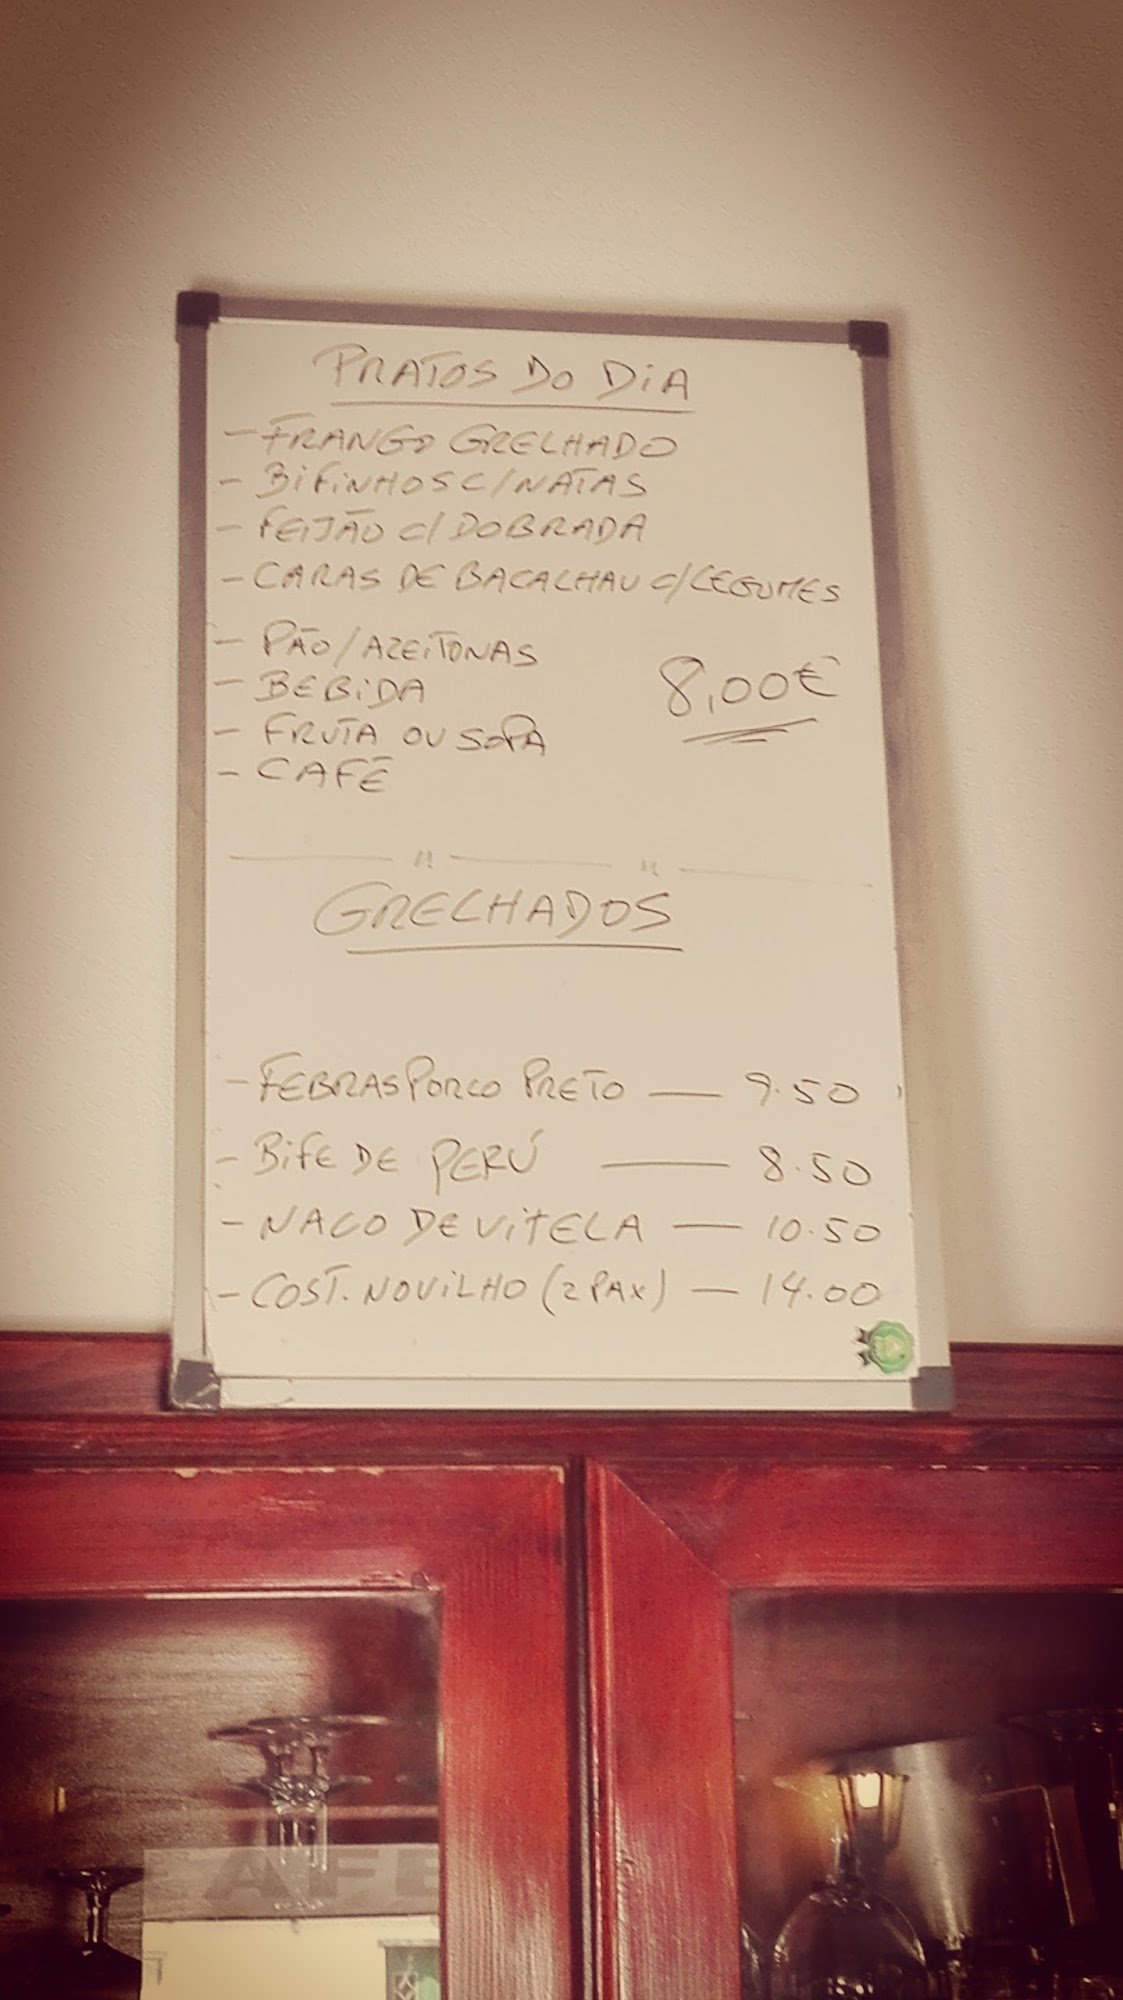 PRATOS DO DIA
- FRANGO GRELHADO
- BIFINHOS C/NATAS
- FEIJÃO C/ DOBRADA
- CARAS DE BACALHAU C/LEGUMES
- PÃO/AZEITONAS
- BEBIDA
8,00€
- FRUTA OU SOPA
- CAFÉ
GRELHADOS
- FEBRAS PORCO PRETO — 9.50
- BIFE DE PERÚ — 8.50
- NACO DE VITELA — 10.50
- COST. NOVILHO (2 PAX) — 14.00
CAFE